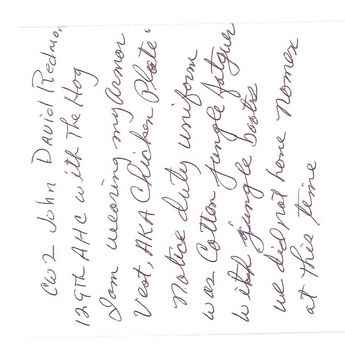 CW2 John David Redmon
129th AHC with The Hog
I am wearing my Armor
Vest, AKA Chicken Plate.
Notice duty uniform
was Cotton jungle fatigues
with jungle boots
we did not have Nomex
at this time